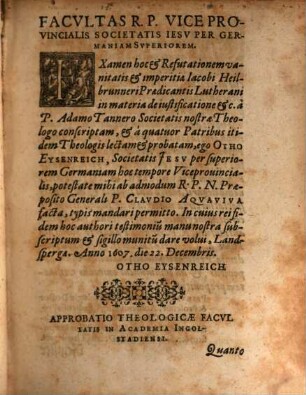 FACVLTAS R. P. VICE PRO-
VINCIALIS SOCIETATIS IESV PER GER-
MANIAM SVPERIOREM.
EXamen hoc & Refutationem va-
nitatis & imperitia Iacobi Heil-
brunneri Prædicantis Lutherani
in materia de iustificatione &c. à
P. Adamo Tannero Societatis nostræ Theo-
logo conscriptam, & à quatuor Patribus iti-
dem Theologis lectam & probatam, ego OTHO
EYSENREICH, Societatis IESV per superio-
rem Germaniam hoc tempore Viceprouincia-
lis, potestate mihi ab admodum R. P. N. Præ-
posito Generali P. CLAVDIO AQVAVIVA
facta, typis mandari permitto. In cuius rei fi-
dem hoc authori testimoniũ manu nostra sub-
scriptum & sigillo munitũ dare volui, Land-
spergæ. Anno 1607. die 22. Decembris.
OTHO EYSENREICH
APPROBATIO THEOLOGICÆ FACVL
TATIS IN ACADEMIA INGOL-
STADIENSI.
Quanto